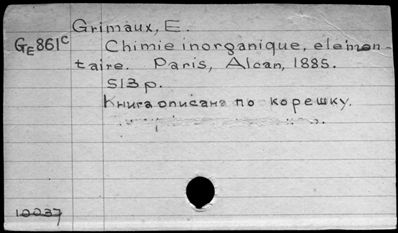 Grimaux, E.
GE861c
Chimie inorganique, elemen-
taire. Paris, Alcan, 1885.
513 p.
Книга описана по корешку.
10037